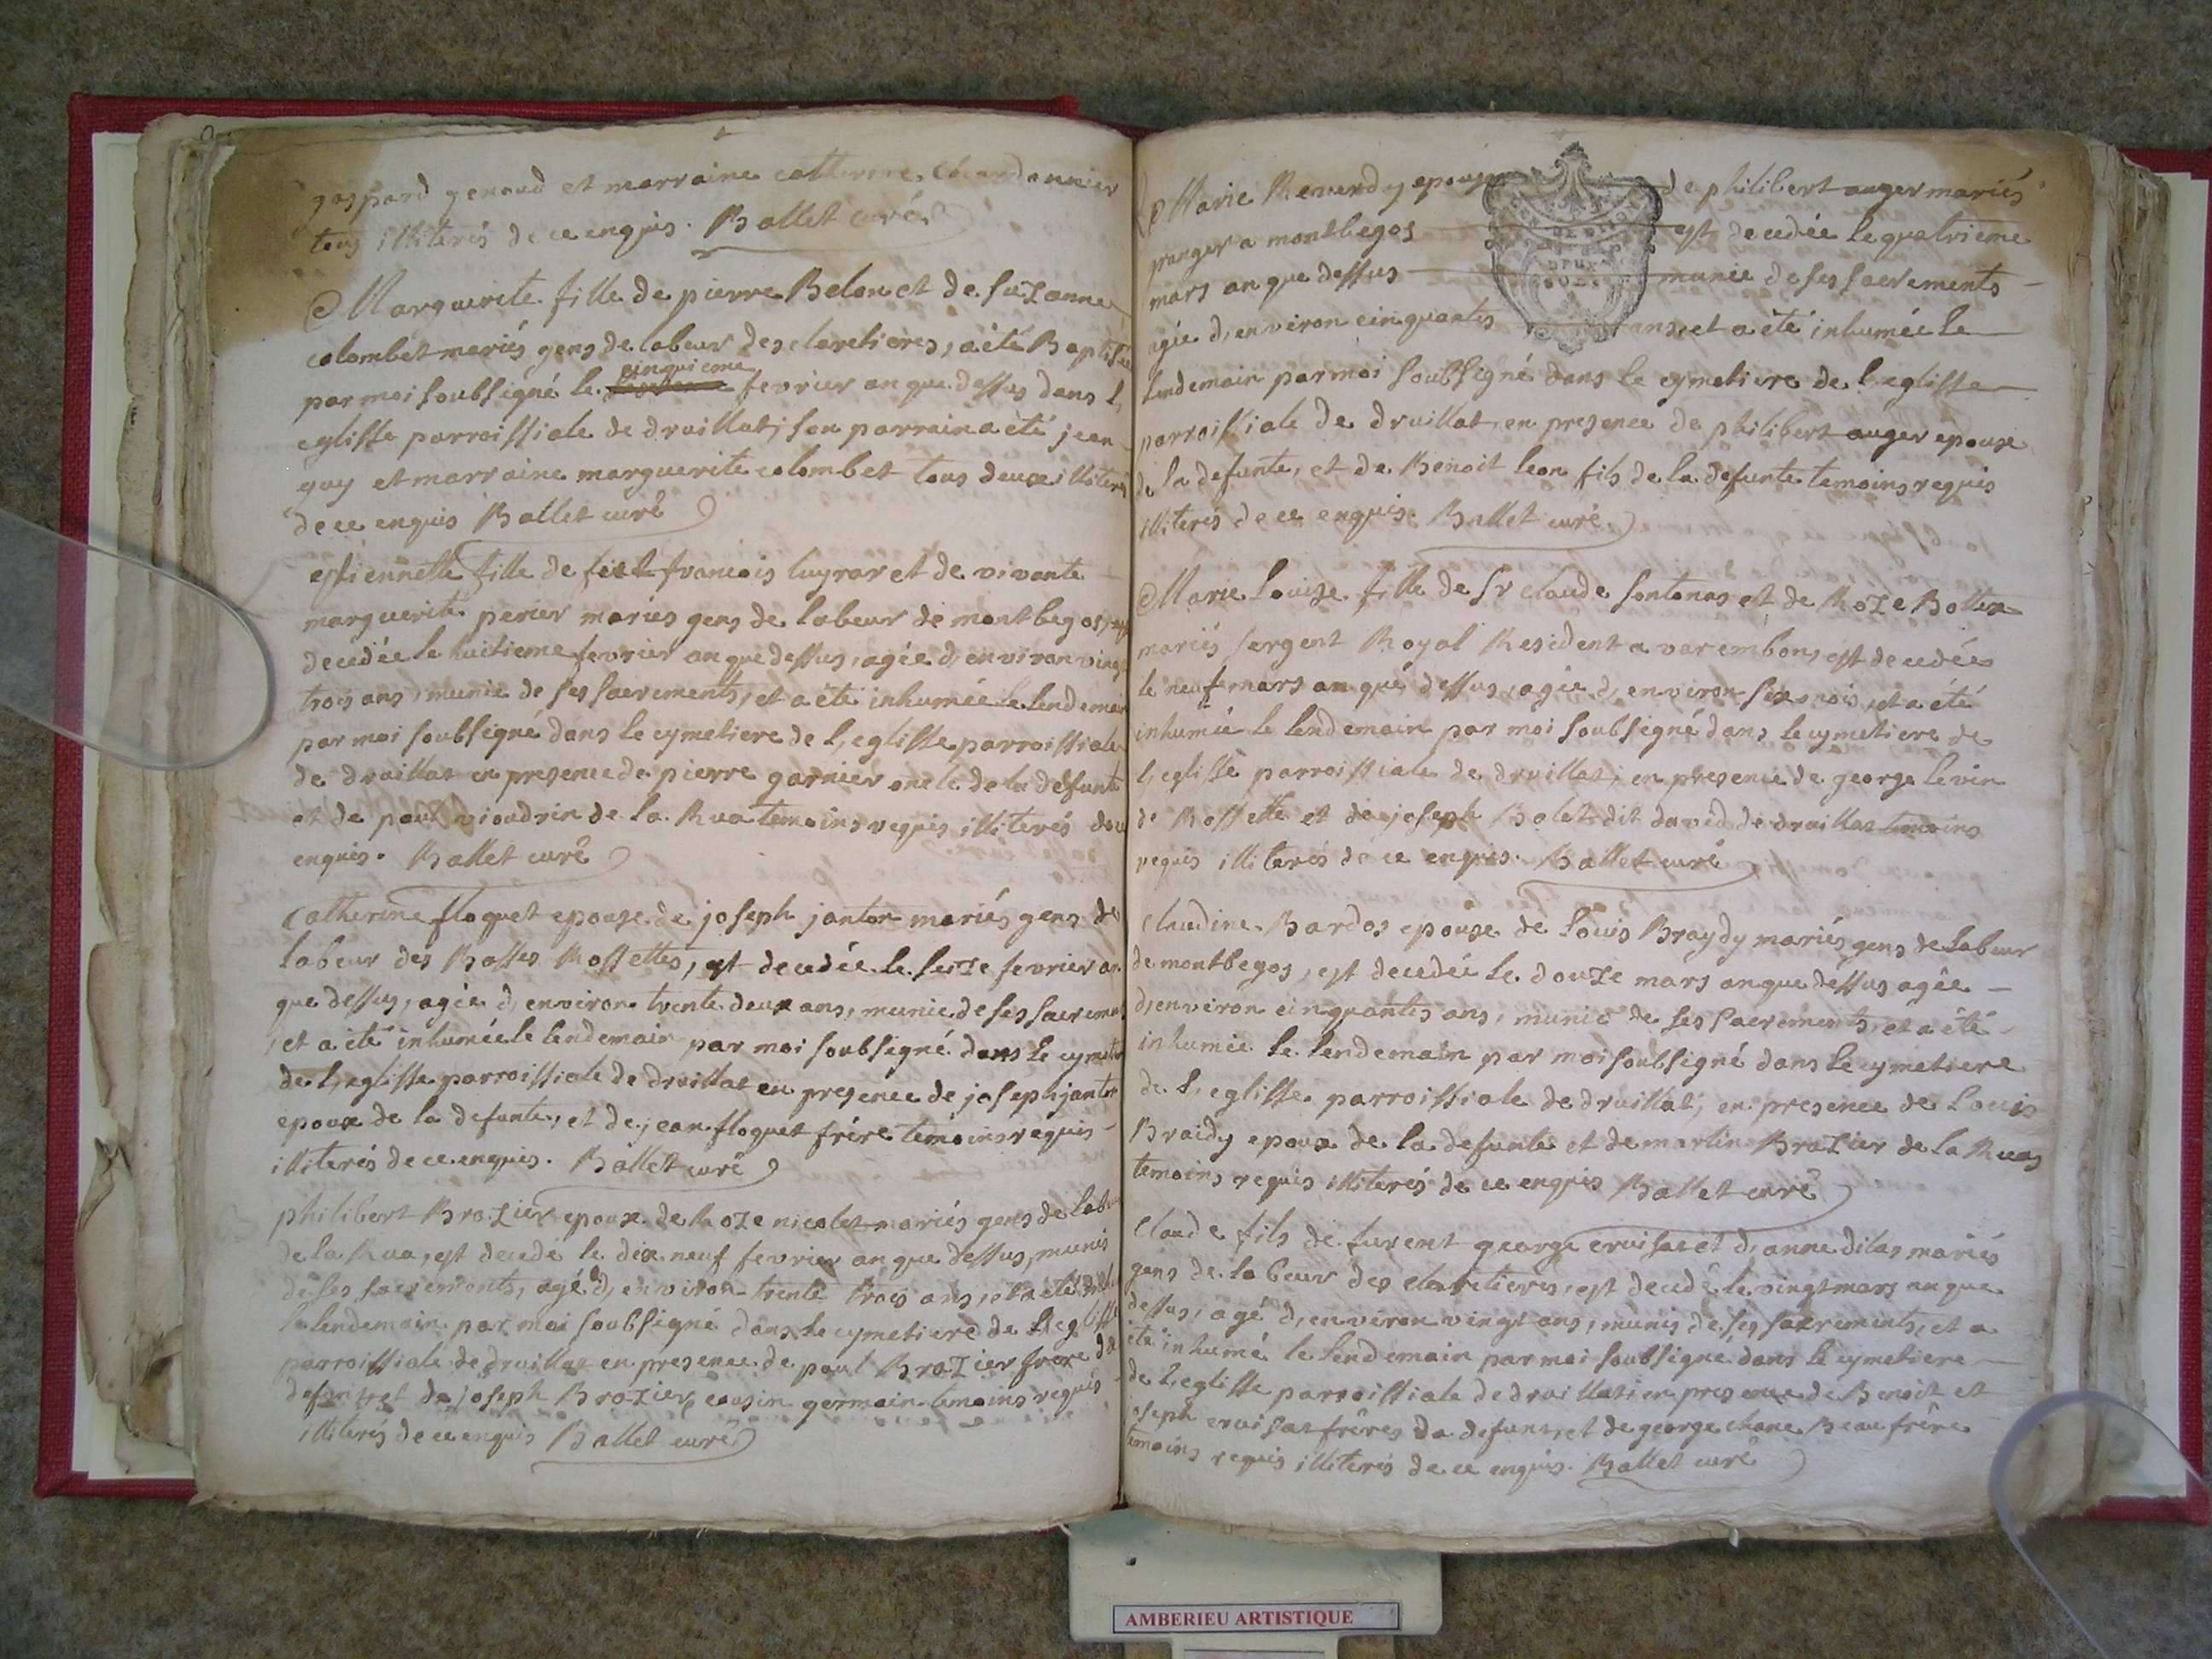 gaspard genoud et marraine catherine
tous illiterés de ce enquis. Ballet curé
Marguerite fille de pierre Belon et de suzanne
colombet mariés gens de labeur des claretieres, a été Baptisée
par moi soubsigné le cinquieme fevrier an que dessus dans l,
eglisse parroissiale de druillat, son parrain a été jean
guy et marraine marguerite colombet tous deux illiterés
de ce enquis Ballet curé
estiennette fille de feu francois luyrar et de vivante
marguerite perier mariés gens de labeur de montbegos, est
decedée le huitieme fevrier an que dessus, agée d, environ vingt
trois ans, munie de ses sacrements, et a été inhumée le lendemain
par moi soubsigné dans le cymetiere de l, eglisse parroissiale
de druillat en presence de pierre garnier oncle de la defunte
et de paul vioudrin de la Rua temoins requis illiterés de ce
enquis. Ballet curé
Catherine floquet epouse de joseph janton mariés gens de
labeur des Basses Rossettes, est decedée le seize fevrier an
que dessus, agée d, environ trente deux ans, munie de ses sacrements
, et a été inhumée le lendemain par moi soubsigné dans le cymetiere
de l, eglisse parroissiale de druillat en presence de joseph janton
epoux de la defunte, et de jean floquet frére temoins requis
illiterés de ce enquis. Ballet curé
philibert Brazier epoux de Roze nicolet mariés gens de labeur
de la Rua, est decedé le dix neuf fevrier an que dessus, munis
de ses sacrements, agé d, environ trente trois ans, et a été inhumé
le lendemain par moi soubsigné dans le cymetiere de l, eglisse
parroissiale de druillat en presence de paul Brazier frere du
defunt, et de joseph Brazier cousin germain temoins requis
illiterés de ce enquis Ballet curé
Marie Renverdy epouse de philibert auger mariés
granger a montbegos est decedée le quatrieme
mars an que dessus munie de ses sacrements
agée d, environ cinquantes ans, et a été inhumée le
lendemain par moi soubsigné dans le cymetiere de l, eglisse
parroissiale de druillat, en presence de philibert auger epoux
de la defunte, et de Benoit leon fils de la defunte temoins requis
illiterés de ce enquis. Ballet curé
Marie Louise fille de Sr claude fontenas et de Roze Bottex
mariés sergent Royal Resident a varembon, est decedée
le neuf mars an que dessus, agée d, environ six mois, et a été
inhumée le lendemain par moi soubsigné dans le cymetiere de
l, eglisse parroissiale de druillat, en presence de george levin
de Rossette et de joseph Bolet dit david de druillat temoins
requis illiterés de ce enquis. Ballet curé
Claudine Bardos epouse de Louis Braydy mariés gens de labeur
de montbegos, est decedée le douze mars an que dessus agée
d, environ cinquantes ans, munie de ses sacrements, et a été
inhumée le lendemain par moi soubsigné dans le cymetiere
de l, eglisse parroissiale de druillat, en presence de Louis
Braidy epoux de la defunte et de martin Brazier de la Rua
temoins requis illiterés de ce enquis Ballet curé
Claude fils de furent george cruisat et d, anne dilas mariés
gens de labeur des claretieres, est decedé le vingt mars an que
dessus, agé d, environ vingt ans, munis de ses sacrements, et a
été inhumé le lendemain par moi soubsigné dans le cymetiere
de l, eglisse parroissiale de druillat, en presence de Benoit et
joseph cruisat fréres du defunt, et de george chane Beau frére
temoins requis illiterés de ce enquis. Ballet curé
AMBERIEU ARTISTIQUE